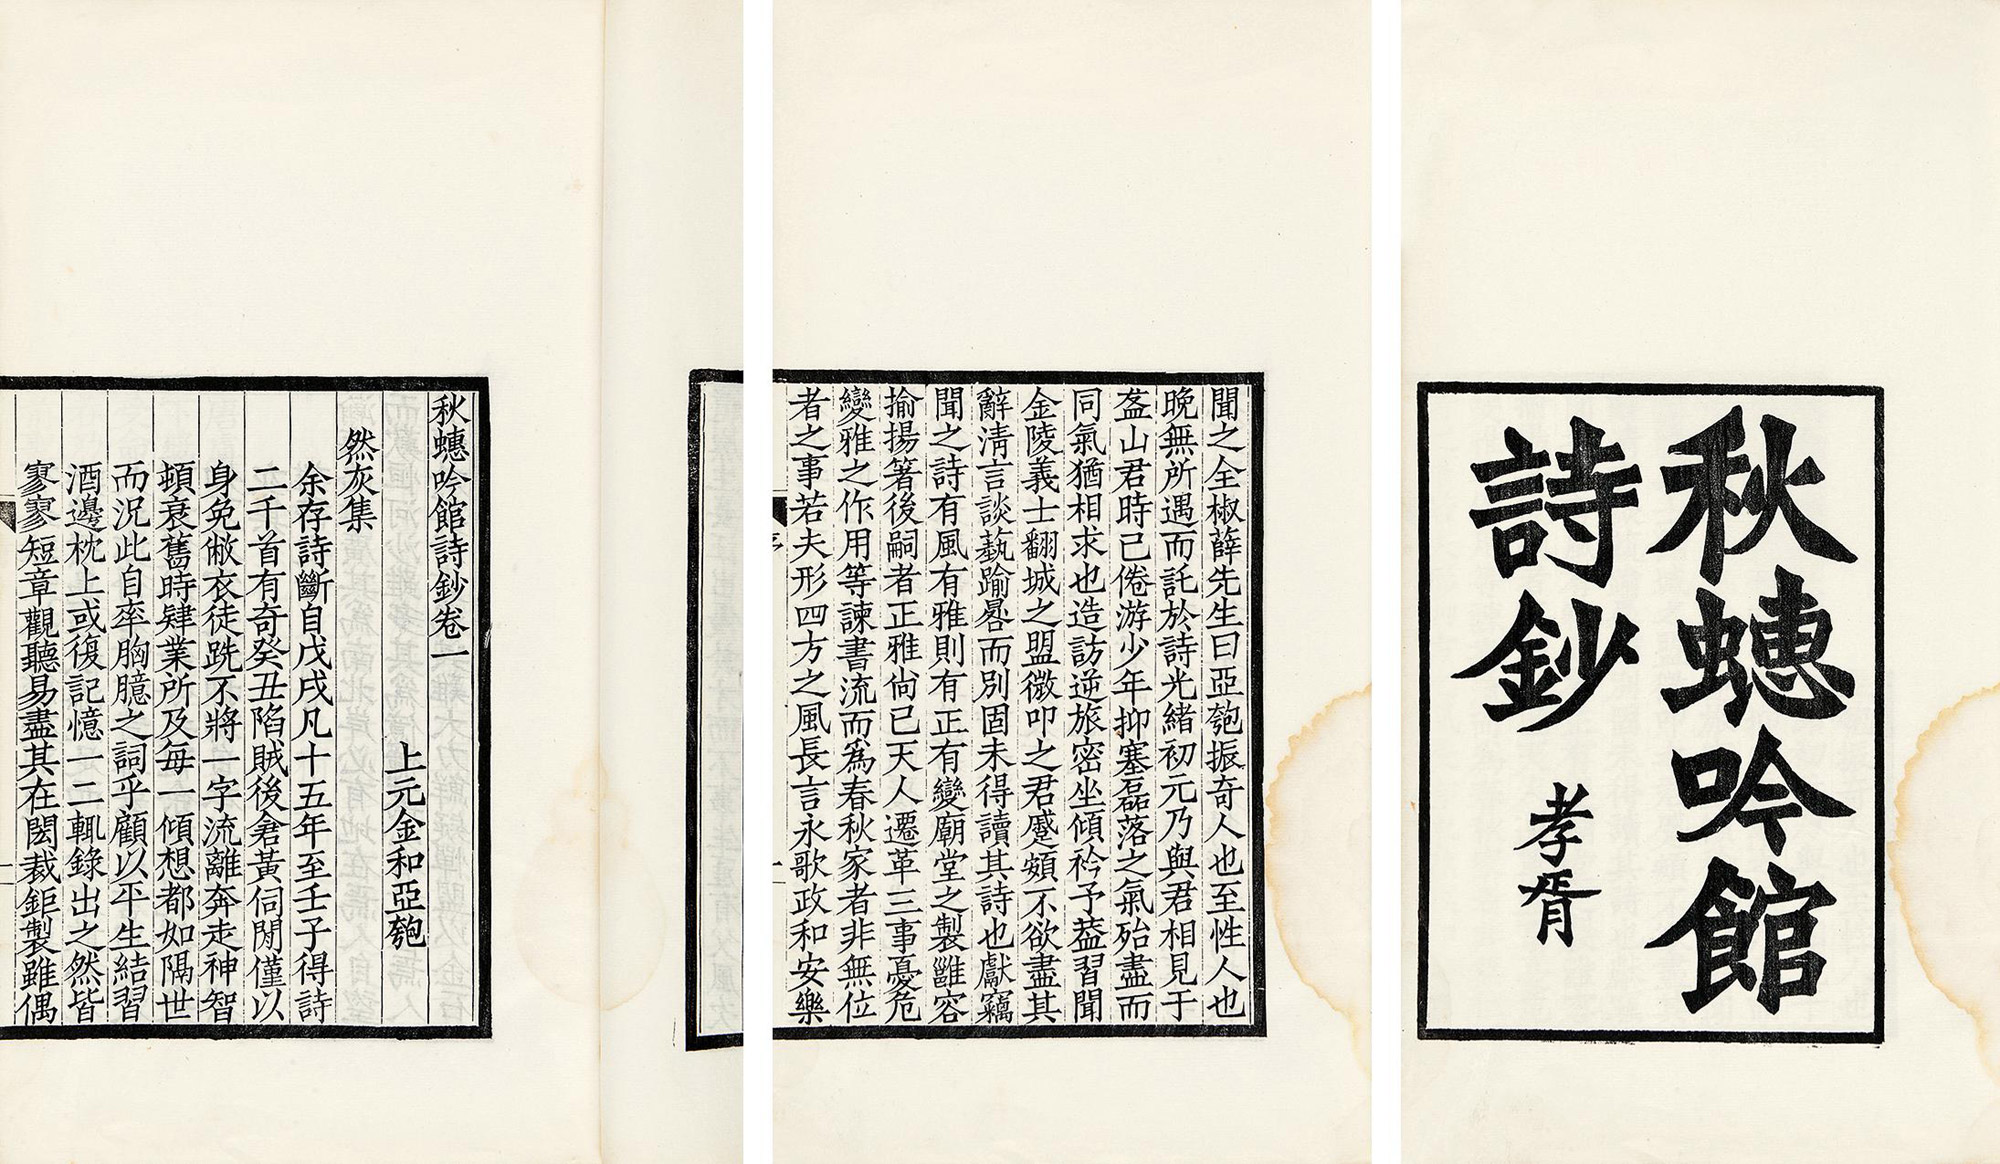 秋蟪吟館
詩鈔
孝胥
聞之全椒薛先生曰亞匏振奇人也至性人也
晚無所遇而託於詩光緒初元乃與君相見于
盋山君時已倦游少年抑塞磊落之氣殆盡而
同氣猶相求也造訪逆旅密坐傾衿予葢習聞
金陵義士翻城之盟微叩之君蹙頞不欲盡其
辭淸言談蓺踰晷而別固未得讀其詩也獻竊
聞之詩有風有雅則有正有變廟堂之製雝容
揄揚箸後嗣者正雅尙已天人遷革三事憂危
變雅之作用等諫書流而爲春秋家者非無位
者之事若夫形四方之風長言永歌政和安樂
序
秋蟪吟館詩鈔卷一
上元金和亞匏
然灰集
余存詩斷自戊戌凡十五年至壬子得詩
二千首有奇癸丑陷賊後倉黃伺閒僅以
身免敝衣徒跣不將一字流離奔走神智
頓衰舊時肄業所及每一傾想都如隔世
而況此自率胸臆之詞乎顧以平生結習
酒邊枕上或復記憶一二輒錄出之然皆
寥寥短章觀聽易盡其在閎裁鉅製雖偶